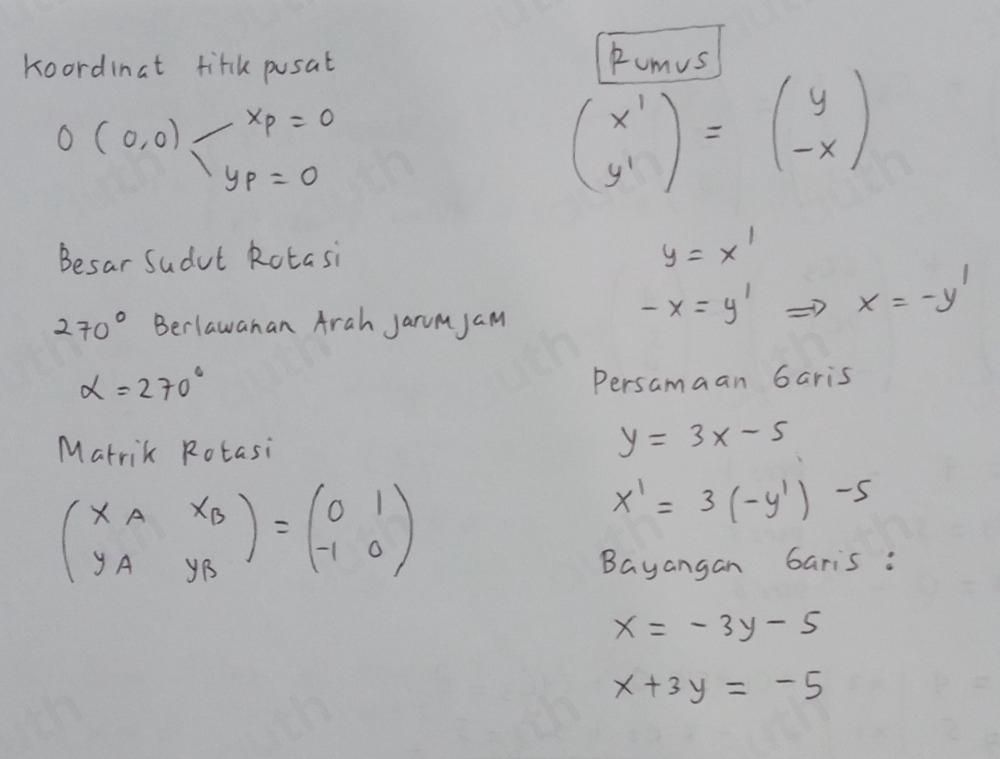 Koordinat titik pusat
O (0,0) xp = 0
yp = 0
Besar Sudut Rotasi
270° Berlawanan Arah Jarum Jam
α = 270°
Matrik Rotasi
( x A xB ) = ( 0 1 )
( y A yB ) ( -1 0 )
Rumus
( x' ) = ( y )
( y' ) ( -x )
y = x'
-x = y' ⇒ x = -y'
Persamaan Garis
y = 3x - 5
x' = 3 (-y') - 5
Bayangan Garis :
x = - 3y - 5
x + 3y = - 5